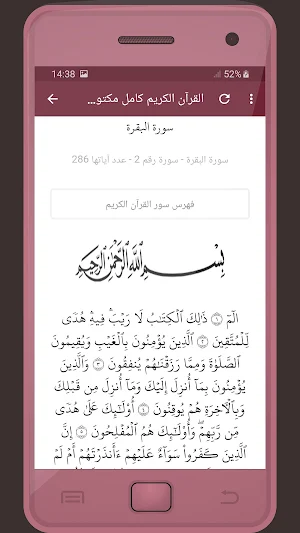 14:38 52%
القرآن الكريم كامل مكتو...
سورة البقرة
سورة البقرة - سورة رقم 2 - عدد آياتها 286
فهرس سور القرآن الكريم
بِسْمِ اللَّهِ الرَّحْمَٰنِ الرَّحِيمِ
الٓمٓ ۝١ ذَٰلِكَ ٱلْكِتَٰبُ لَا رَيْبَۛ فِيهِۛ هُدًى
لِّلْمُتَّقِينَ ۝٢ ٱلَّذِينَ يُؤْمِنُونَ بِٱلْغَيْبِ وَيُقِيمُونَ
ٱلصَّلَوٰةَ وَمِمَّا رَزَقْنَٰهُمْ يُنفِقُونَ ۝٣ وَٱلَّذِينَ
يُؤْمِنُونَ بِمَآ أُنزِلَ إِلَيْكَ وَمَآ أُنزِلَ مِن قَبْلِكَ
وَبِٱلْءَاخِرَةِ هُمْ يُوقِنُونَ ۝٤ أُو۟لَٰٓئِكَ عَلَىٰ هُدًى
مِّن رَّبِّهِمْۖ وَأُو۟لَٰٓئِكَ هُمُ ٱلْمُفْلِحُونَ ۝٥ إِنَّ
ٱلَّذِينَ كَفَرُوا۟ سَوَآءٌ عَلَيْهِمْ ءَأَنذَرْتَهُمْ أَمْ لَمْ